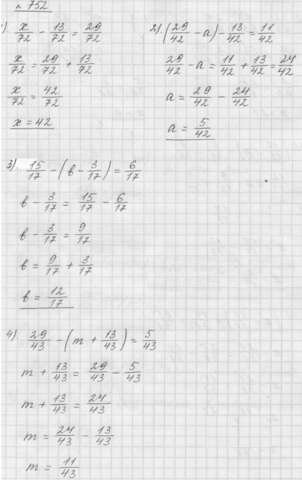 № 752
1) x/72 - 13/72 = 29/72
x/72 = 29/72 + 13/72
x/72 = 42/72
x = 42
2) (29/42 - a) - 13/42 = 11/42
29/42 - a = 11/42 + 13/42 = 24/42
a = 29/42 - 24/42
a = 5/42
3) 15/17 - (в - 3/17) = 6/17
в - 3/17 = 15/17 - 6/17
в - 3/17 = 9/17
в = 9/17 + 3/17
в = 12/17
4) 29/43 - (m + 13/43) = 5/43
m + 13/43 = 29/43 - 5/43
m + 13/43 = 24/43
m = 24/43 - 13/43
m = 11/43